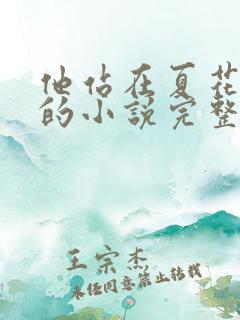 他站在夏花
的小说完整
王宗杰
未经同意禁止转载